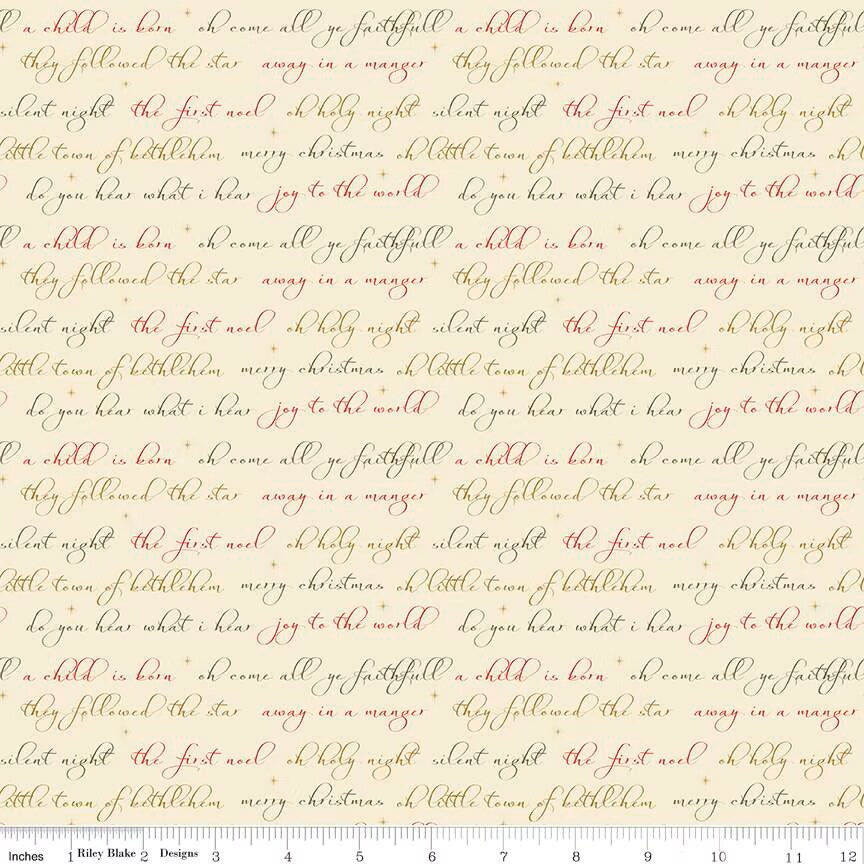 a child is born oh come all ye faithfull a child is born oh come all ye faithfull
they followed the star away in a manger they followed the star away in a manger
silent night the first noel oh holy night silent night the first noel oh holy night
little town of bethlehem merry christmas oh little town of bethlehem merry christmas oh
do you hear what i hear joy to the world do you hear what i hear joy to the world
a child is born oh come all ye faithfull a child is born oh come all ye faithfull
they followed the star away in a manger they followed the star away in a manger
silent night the first noel oh holy night silent night the first noel oh holy night
little town of bethlehem merry christmas oh little town of bethlehem merry christmas oh
do you hear what i hear joy to the world do you hear what i hear joy to the world
a child is born oh come all ye faithfull a child is born oh come all ye faithfull
they followed the star away in a manger they followed the star away in a manger
silent night the first noel oh holy night silent night the first noel oh holy night
little town of bethlehem merry christmas oh little town of bethlehem merry christmas oh
do you hear what i hear joy to the world do you hear what i hear joy to the world
a child is born oh come all ye faithfull a child is born oh come all ye faithfull
they followed the star away in a manger they followed the star away in a manger
silent night the first noel oh holy night silent night the first noel oh holy night
little town of bethlehem merry christmas oh little town of bethlehem merry christmas oh
Inches 1 Riley Blake 2 Designs 3 4 5 6 7 8 9 10 11 12